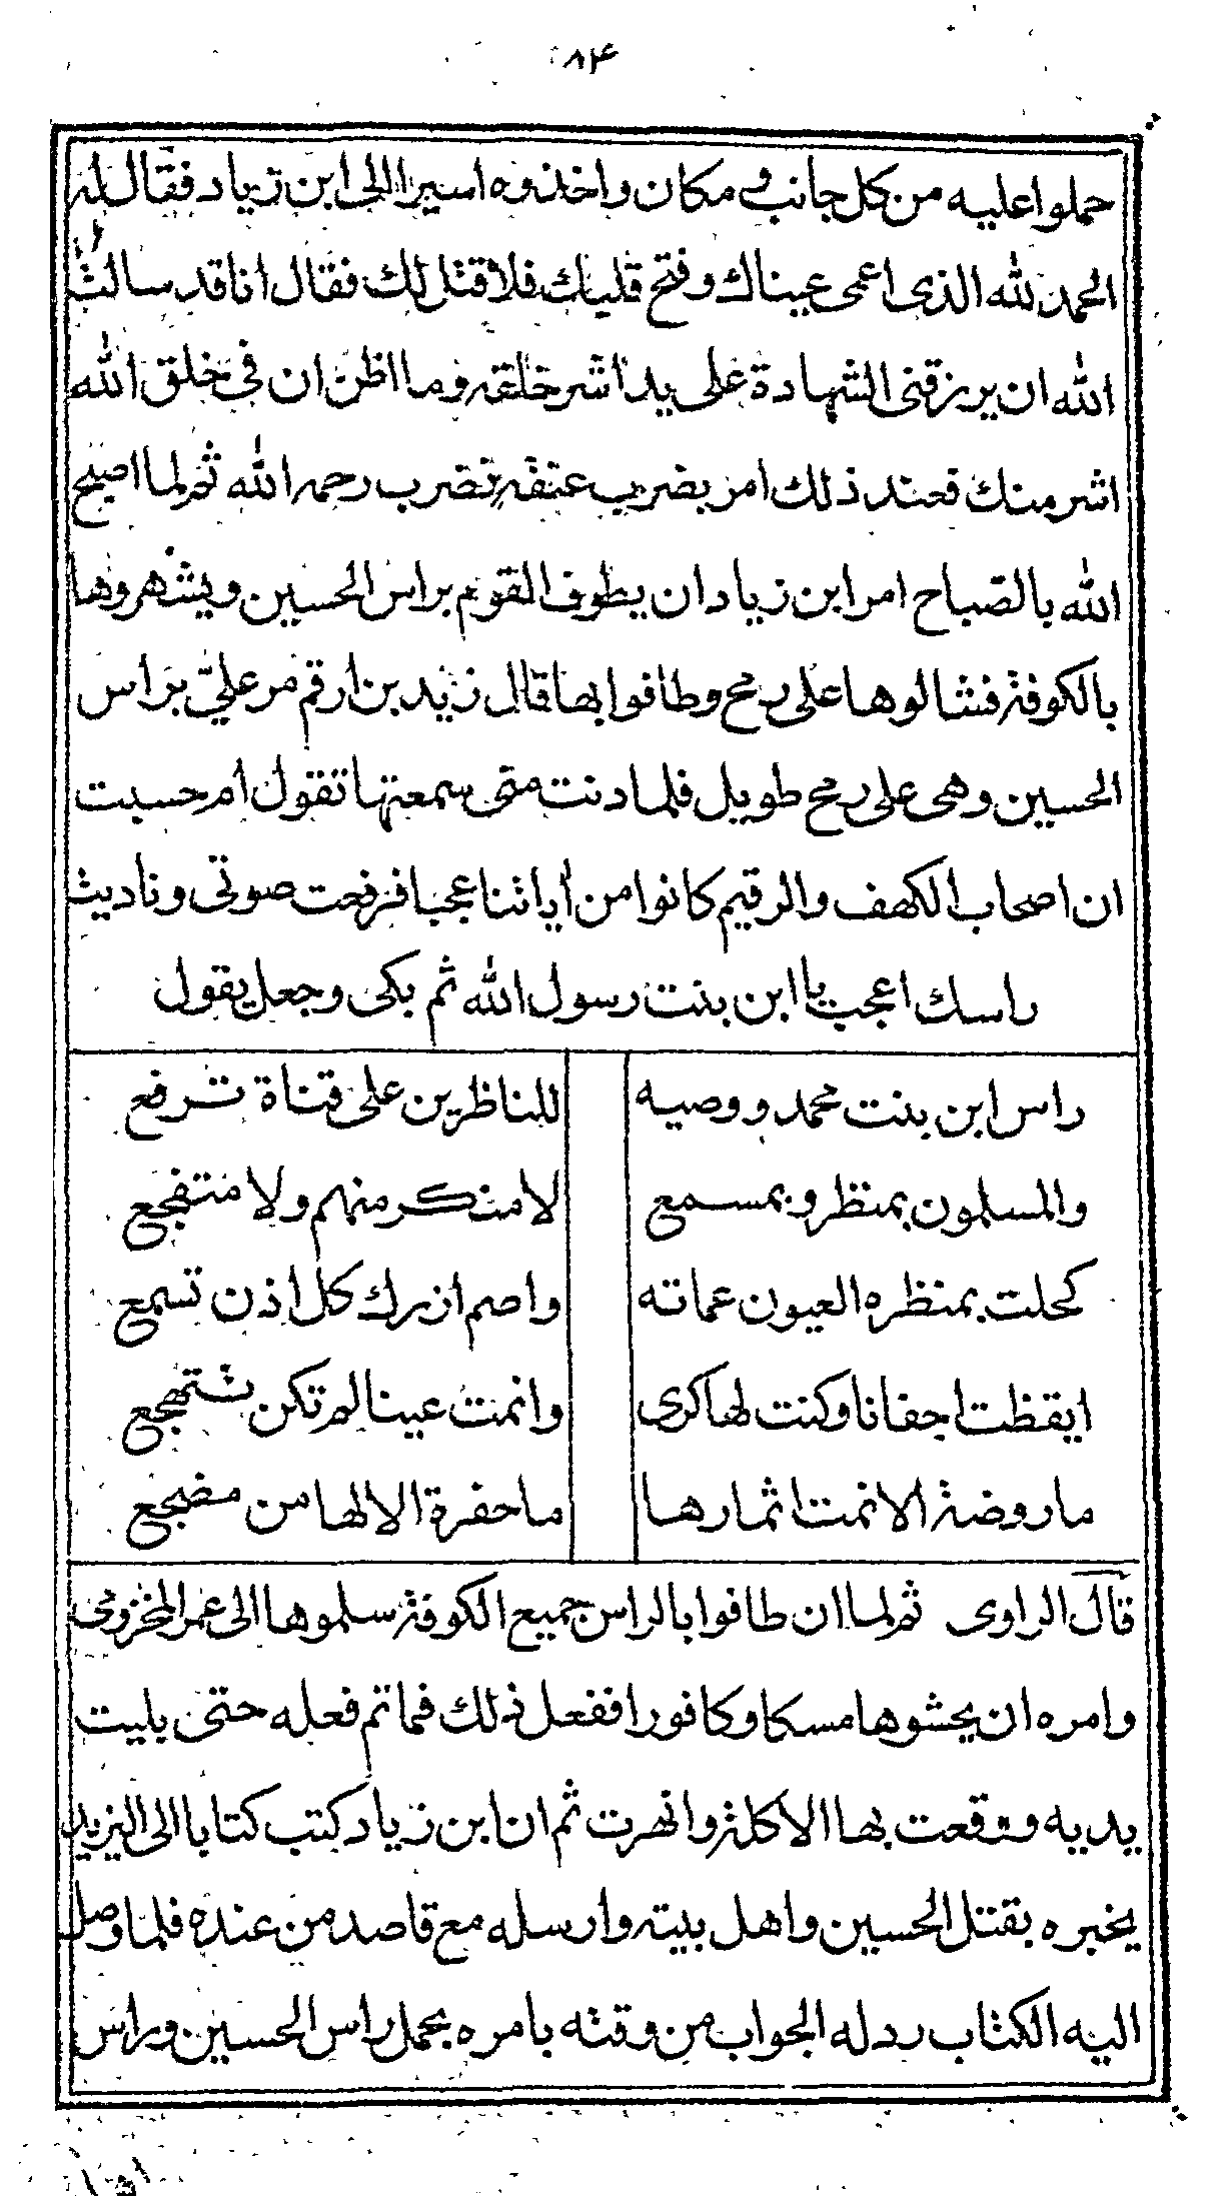 ۸۴
حملوا عليه من كل جانب و مكان واخذوه اسيرا الى ابن زياد فقال له
الحمد لله الذى اعمى عيناك وفتح قلبك فلاقتلك فقال انا قد سالت
الله ان يرزقنى الشهادة على يد اشر خلقه وما اظن ان فى خلق الله
اشر منك فعند ذلك امر بضرب عنقه فضرب رحمه الله ثم لما اصبح
الله بالصباح امر ابن زياد ان يطوف القوم براس الحسين ويشهروها
بالكوفة فشالوها على رمح وطافوا بها قال زيد بن ارقم مر علىّ براس
الحسين وهى على رمح طويل فلما دنت منى سمعتها تقول ام حسبت
ان اصحاب الكهف والرقيم كانوا من أياتنا عجبا فرفعت صوتى وناديت
راسك اعجب يا ابن بنت رسول الله ثم بكى وجعل يقول
راس ابن بنت محمد ووصيه للناظرين على قناة ترفع
والمسلمون بمنظر وبمسمع لا منكر منهم ولا متفجع
كحلت بمنظره العيون عماته واصم ازرك كل اذن تسمع
ايقظت اجفانا وكنت لها كرى وانمت عينا لم تكن تتهجع
ما روضة الا تمنت اثمارها ما حفرة الا لها من مضجع
قال الراوى ثم لما ان طافوا بالراس جميع الكوفة سلموها الى عمر المخزومى
وامره ان يحشوها مسكا وكافورا ففعل ذلك فما تم فعله حتى يليت
يديه ووقعت بها الاكلة وانهرت ثم ان ابن زياد كتب كتابا الى اليزيد
يخبره بقتل الحسين واهل بيته وارسله مع قاصد من عنده فلما وصل
اليه الكتاب رد له الجواب من وقته بامره بحمل راس الحسين وراس